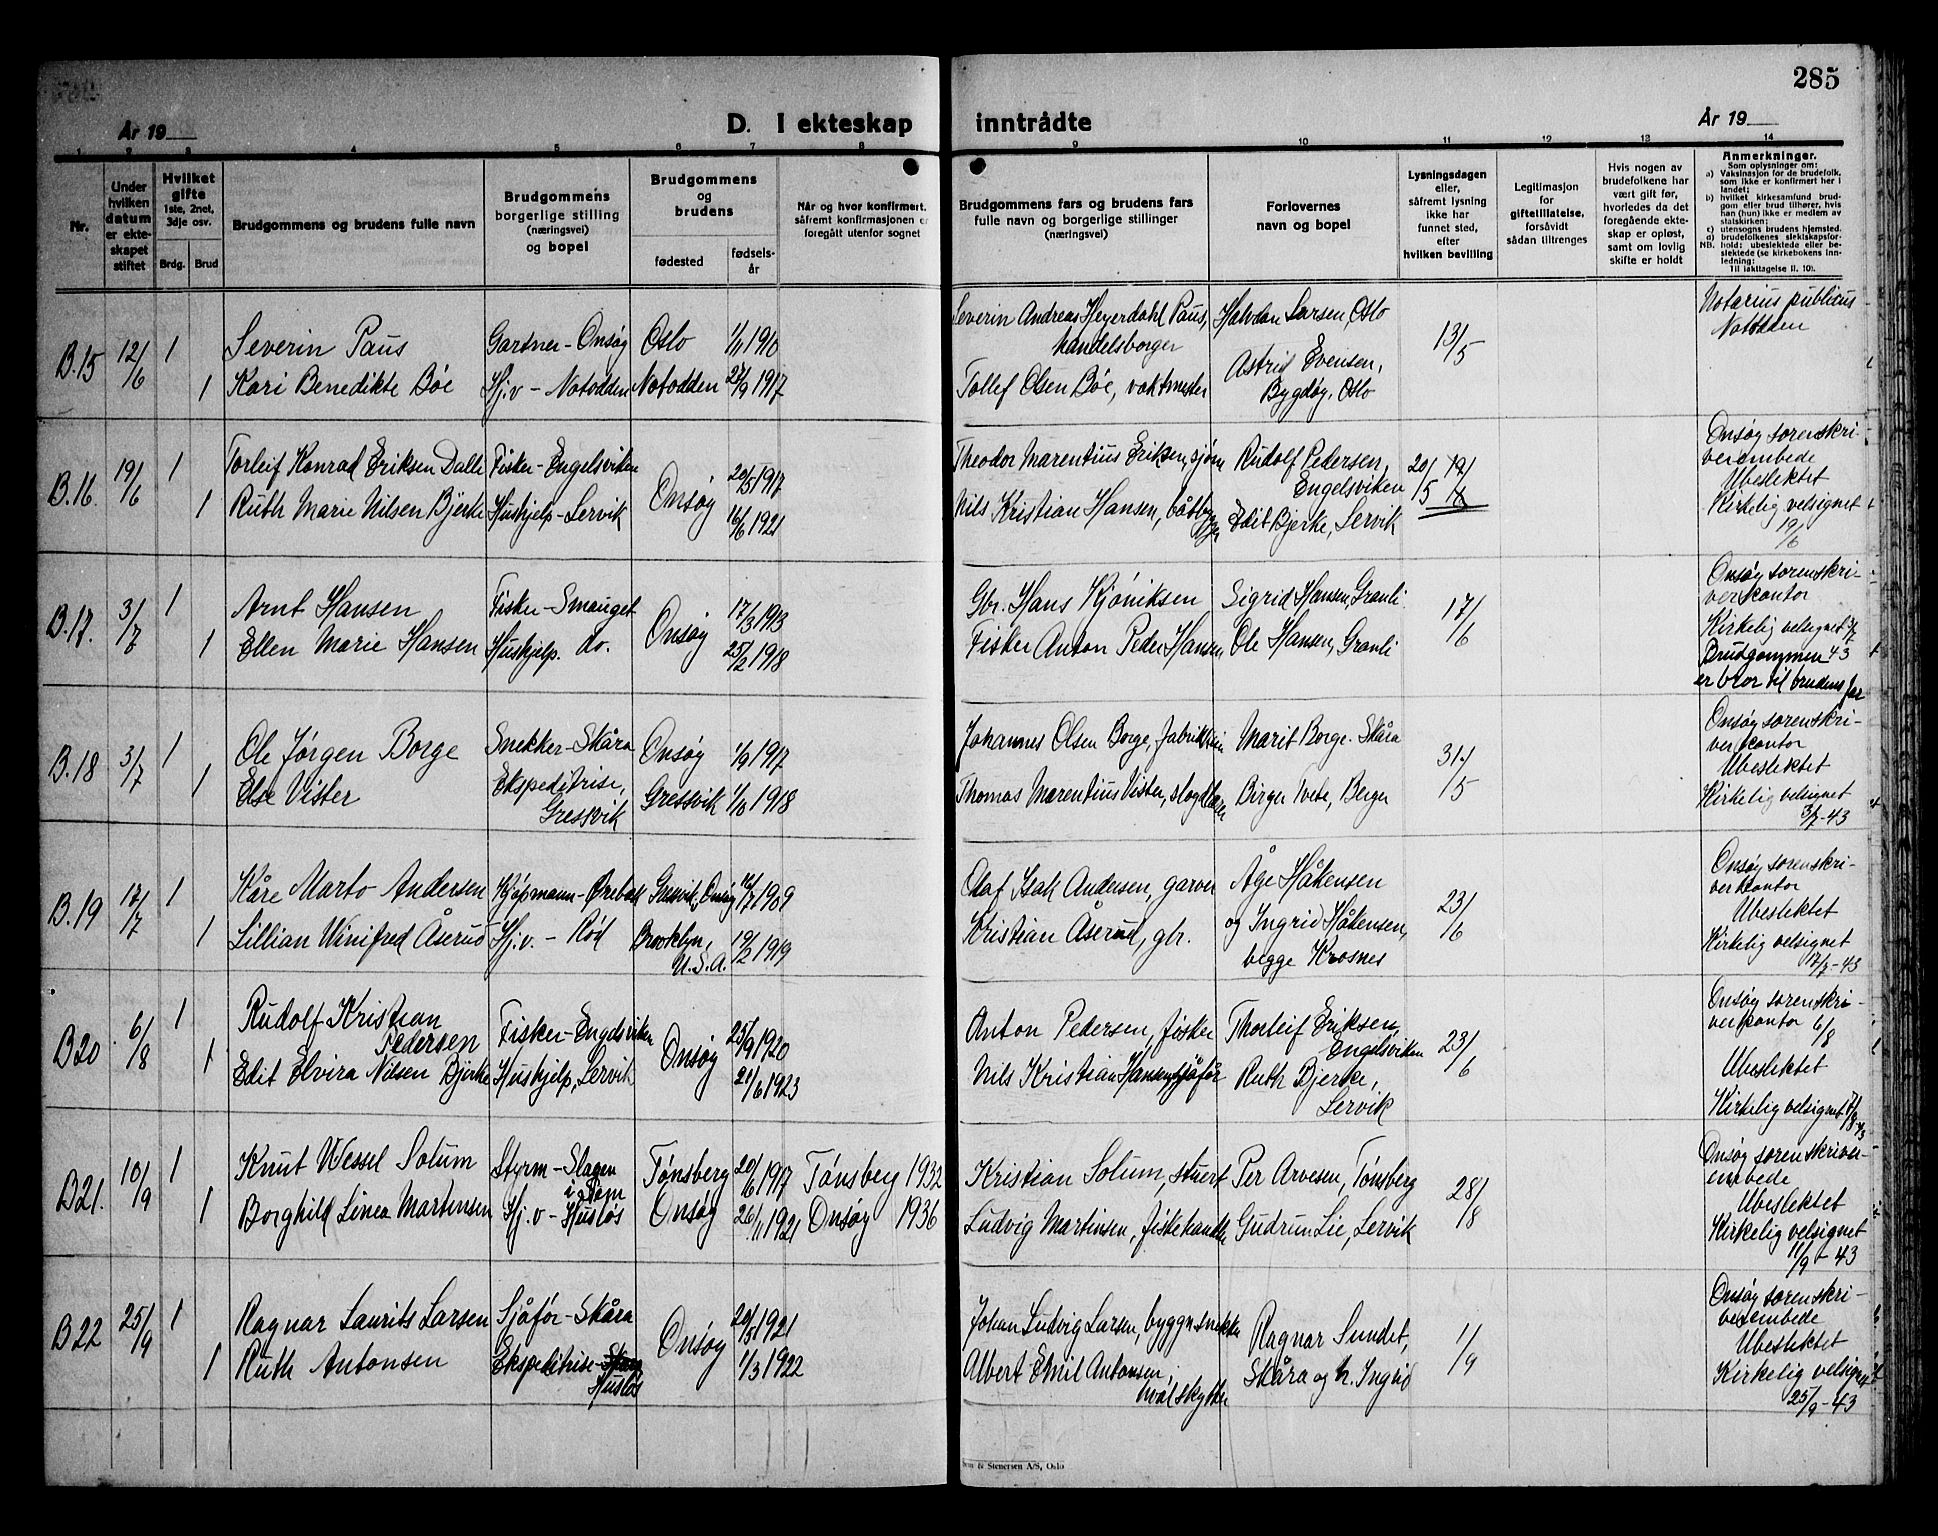 285
År 19
D. I ekteskap inntrådte
År 19
1 2 3 4 5 6 7 8 9 10 11 12 13 14
Nr.
Under hvilken datum er ekteskapet stiftet
Hvilket gifte 1ste, 2net, 3dje osv.
Brdg. Brud
Brudgommens og brudens fulle navn
Brudgommens borgerlige stilling (næringsvei) og bopel
Brudgommens og brudens
fødested
fødselsår
Når og hvor konfirmert, såfremt konfirmasjonen er foregått utenfor sognet
Brudgommens fars og brudens fars fulle navn og borgerlige stillinger (næringsvei)
Forlovernes navn og bopel
Lysningsdagen eller, såfremt lysning ikke har funnet sted, efter hvilken bevilling
Legitimasjon for giftetillatelse, forsåvidt sådan tiltrenges
Hvis nogen av brudefolkene har vært gift før, hvorledes da det foregående ekteskap er opløst, samt om lovlig skifte er holdt
Anmerkninger.
Som oplysninger om:
a) Vaksinasjon for de brudefolk, som ikke er konfirmert her i landet;
b) hvilket kirkesamfund brudgom eller brud tilhører, hvis han (hun) ikke er medlem av statskirken;
c) utensogns brudens hjemsted.
d) brudefolkenes slektskapsforhold: ubeslektede eller beslektede (se kirkebokens innledning:
NB.
Til iakttagelse II. 10).
B.15 12/6 1 Severin Paus Gartner - Onsøy Oslo 1/11 1910 Severin Andreas Heyerdahl Paus, handelsborger Halvdan Larsen, Oslo 13/5 Notarius publicus Notodden
1 Kari Benedikte Bøe Hj.v - Notodden Notodden 27/9 1917 Tollef Olsen Bøe, vaktmester Astrid Evensen, Bygdøy, Oslo
B.16 19/6 1 Torleif Konrad Eriksen Dalli Fisker - Engelsviken Onsøy 20/5 1917 Theodor Marentius Eriksen, sjøm Rudolf Pedersen, Engelsviken 20/5 Onsøy sorenskriverembede
1 Ruth Marie Nilsen Bjerke Hushjelp - Lervik 16/6 1921 Nils Kristian Hansen, båtbygger Edit Bjerke, Lervik Ubeslektet Kirkelig velsignet 19/6
B.17. 3/7 1 Arnt Hansen Fisker - Smauget Onsøy 17/3 1913 Gbr. Hans Kjøniksen Sigrid Hansen, Granli 17/6 Onsøy sorenskriverkontor
1 Ellen Marie Hansen Hushjelp. do. 25/2 1918 Fisker Anton Peder Hansen Ole Hansen, Granli Kirkelig velsignet 3/7 43 Brudgommen er bror til brudens far
B.18 3/7 1 Ole Jørgen Borge Snekker - Skåra Onsøy 1/9 1917 Johannes Olsen Borge, Marit Borge - Skåra 31/5 Onsøy sorenskriverkontor
1 Else Vister Ekspeditrise, Gressvik Gressvik 1918 Thomas Marentius Vister, Birger Tvete, Berger Ubeslektet Kirkelig velsignet 3/7-43
B.19 17/7 1 Kåre Marto Andersen Kjøpmann - Ørebekk Gressvik, Onsøy 1909 Olaf Isak Andersen, garver Åge Håkensen 23/6 Onsøy sorenskriverkontor
1 Lillian Winifred Åserud Hj.v. - Rød Brooklyn, U.S.A. 19/2 1919 Kristian Åserud, gbr. og Ingrid Håkensen, begge Krosnes Ubeslektet Kirkelig velsignet 17/7-43
B20 6/8 1 Rudolf Kristian Pedersen Fisker - Engelsviken Onsøy 25/9 1920 Anton Pedersen, fisker Thorleif Eriksen, Engelsviken 23/6 Onsøy sorenskriverkontor 6/8
1 Edit Elvira Nilsen Bjerke Hushjelp, Lervik 21/6 1923 Nils Kristian Hansen, sjåfør Ruth Bjerke, Lervik Ubeslektet Kirkelig velsignet 7/8-43
B21. 10/9 1 Knut Wessel Solum Styrm - Slagen Tønsberg 20/6 1917 Tønsberg 1932 Kristian Solum, stuert Per Arvesen, Tønsberg 28/8 Onsøy sorenskriverembede
1 Borghild Linea Martinsen Hj.v - Husløs Onsøy 26/11 1921 Onsøy 1936 Ludvig Martinsen, fiskehandler Gudrun Lie, Lervik Ubeslektet Kirkelig velsignet 11/9-43
B22 25/9 1 Ragnar Laurits Larsen Sjåfør - Skåra Onsøy 20/5 1921 Johan Ludvig Larsen, byggn.snekker Ragnar Sundet, 1/9 Onsøy sorenskriverembede
1 Ruth Antonsen Ekspeditrise - Skåra Husløs 1/3 1922 Albert Emil Antonsen, hvalskytter Skåra og h. Ingrid Ubeslektet Kirkelig velsignet 25/9-43
& Stenersen A/S, Oslo